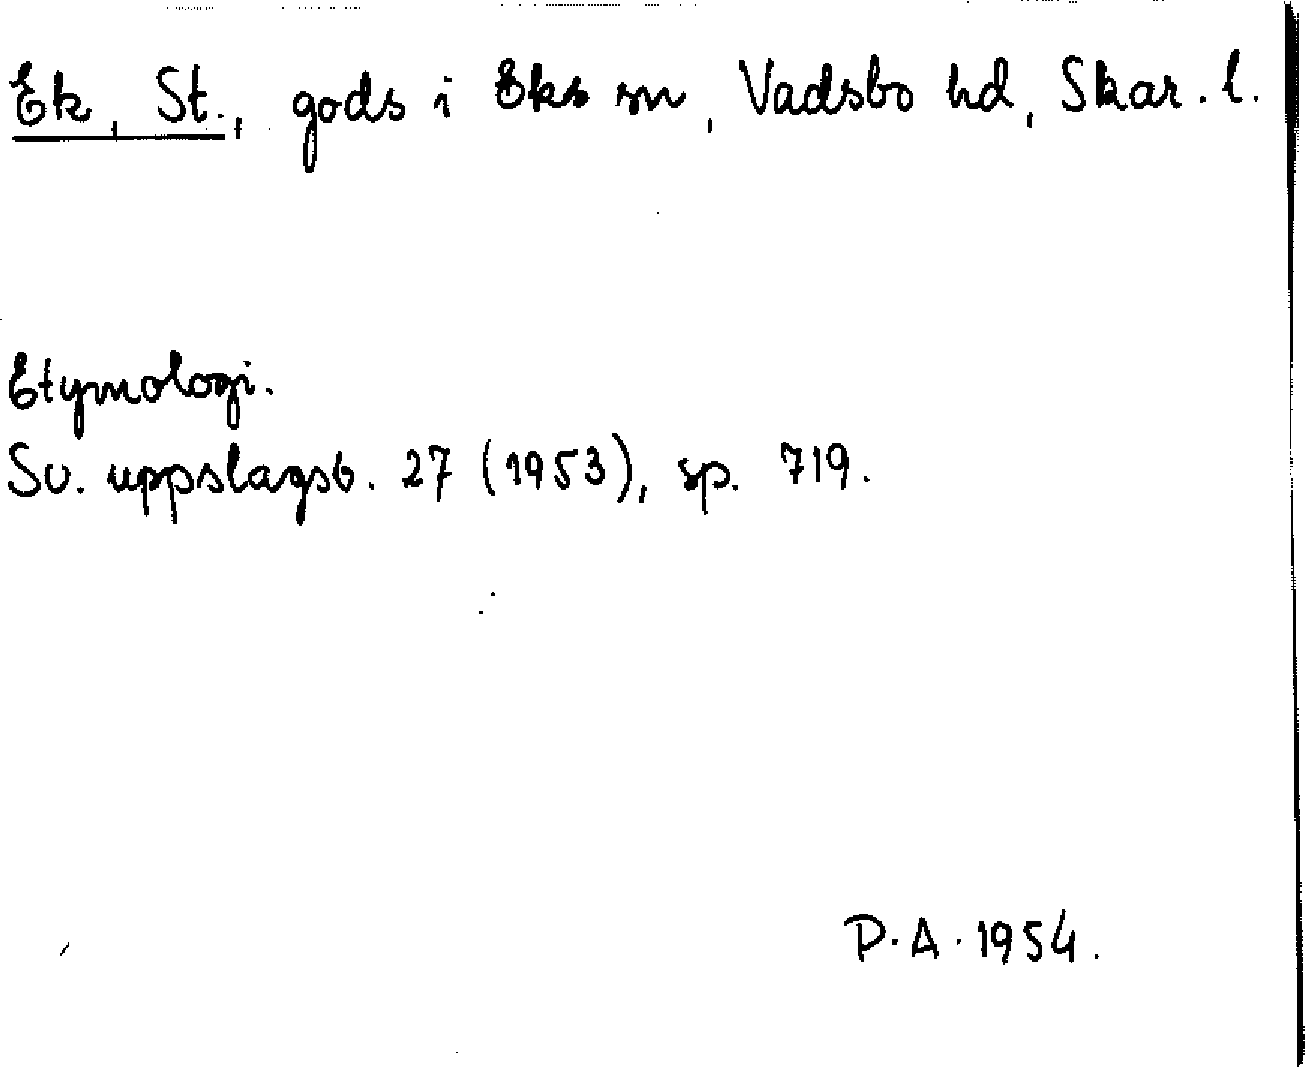 Ek, St., gods i Eks sn, Vadsbo hd, Skar. l.
Etymologi.
Sv. uppslagsb. 27 (1953), sp. 719.
P.A. 1954.